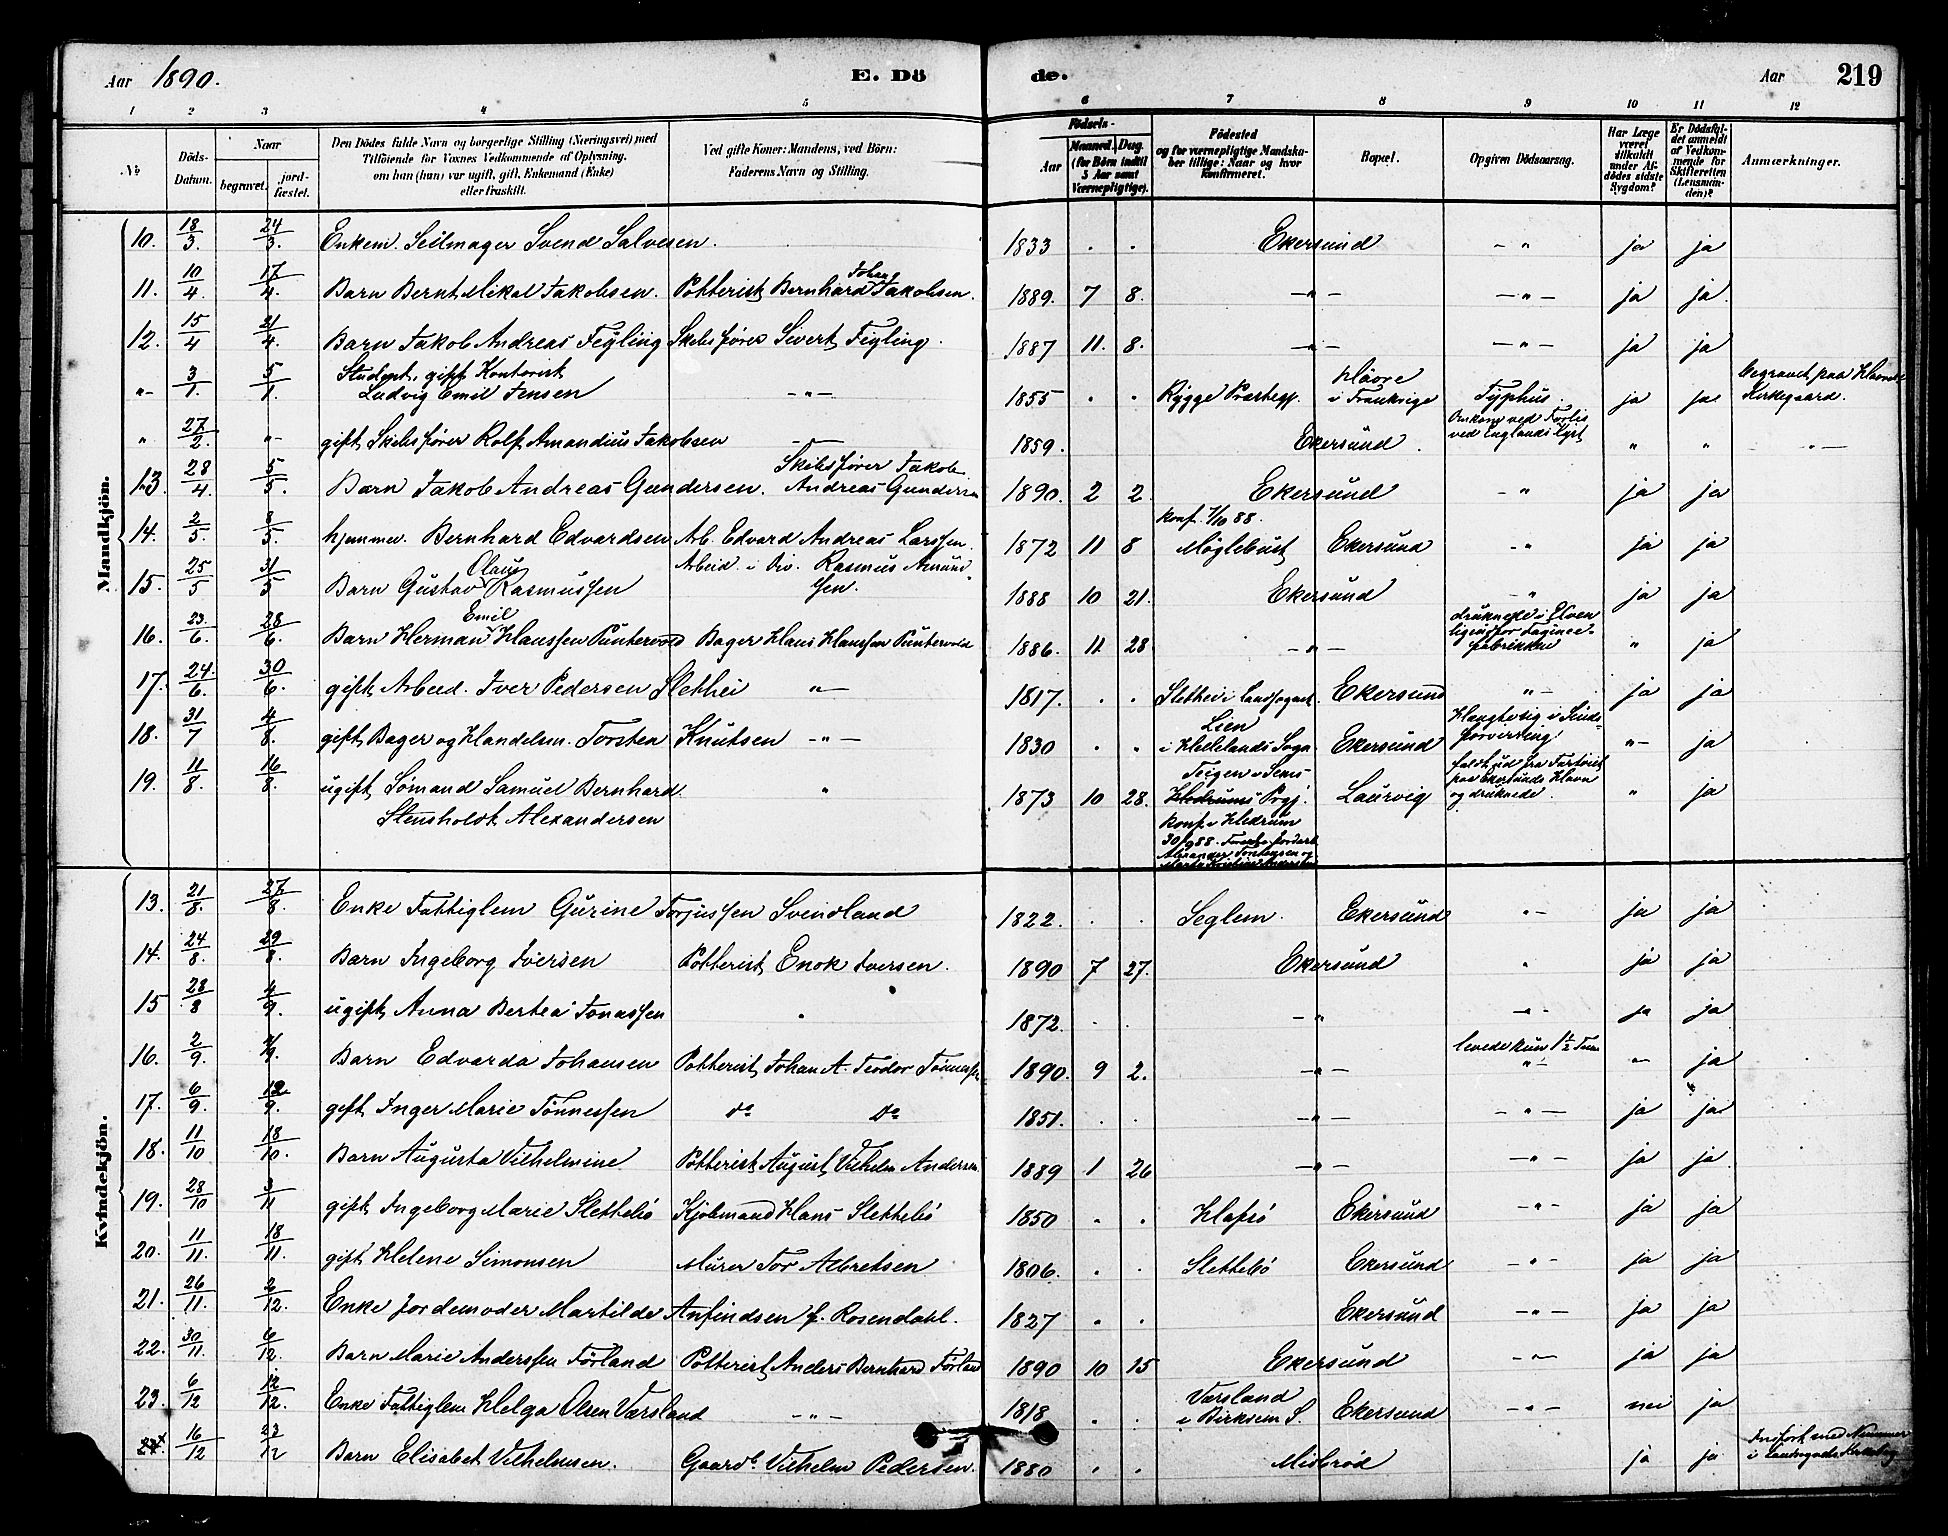 Aar 1890. E. Dö de. Aar 219
1 2 3 4 5 6 7 8 9 10 11 12
No. Döds-Datum. Naar begravet. jord-fæstet. Den Dödes fulde Navn og borgerlige Stilling (Næringsvei) med Tilföiende for Voxnes Vedkommende af Oplysning, om han (hun) var ugift, gift, Enkemand (Enke) eller fraskilt. Ved gifte Koner: Mandens, ved Börn: Faderens Navn og Stilling. Födsels- Aar Maaned. Dag. (for Börn indtil 5 Aar samt Værnepligtige). Födested og for værnepligtige Mandskaber tillige: Naar og hvor konfirmeret. Bopæl. Opgiven Dödsaarsag. Har Læge været tilkaldt under Afdödes sidste Sygdom? Er Dödsfaldet anmeldt af Vedkommende for Skifteretten (Lensmanden)? Anmærkninger.
Mandkjön.
10. 18/3. 24/3. Enkem. Seilmager Svend Salvesen. 1833 . . Ekersund -"- ja ja
11. 10/4. 17/4. Barn Bernt Mikal Jakobsen. Potterist Bernhard Johan Jakobsen. 1889. 7 8. -"- -"- ja ja.
12. 15/4 21/4. Barn Jakob Andreas Feyling Skibsfører Sivert Feyling. 1887 11. 8. -"- -"- ja ja
"- 3/1. 5/1. Student, gift Kontorist Ludvig Emil Jensen -"- 1855 . . Rygge Præstegj. Havre i Frankrige Typhus. ja ja Begravet paa Havre Kirkegaard.
" 27/2. "- gift Skibsfører Rolf Amandius Jakobsen 1859. Ekersund. Omkom ved Forlis ved Englands Kyst " " -"-
13. 28/4. 5/5. Barn Jakob Andreas Gundersen. Skibsfører Jakob Andreas Gundersen 1890. 2 2 Ekersund -"- ja ja
14. 2/5. 8/5. hjemmev. Bernhard Edvardsen Arb. Edvard Andreas Larssen. 1872 11 8 konf. 7/10 88. Møglebust Ekersund -"- ja ja
15. 25/5 31/5 Barn Gustav Olaus Rasmussen Arbeid. i Div. Rasmus Amundsen. 1888 10 21. Ekersund -"- ja ja
16. 23/6. 28/6. Barn Herman Emil Hanssen Puntervold Bager Hans Hanssen Puntervold 1886. 11 28 -"- druknede i Elven ligenfor fabrikken " ja
17. 24/6. 30/6. gift Arbeid. Iver Pedersen Slethei "- 1817. . . Slethei i Landsognet Ekersund "- ja ja
18. 31/7 4/8. gift Bager og Handelsm. Torsten Knutsen -"- 1830 . . Lien i Hellelands Sogn Ekersund Hængte sig i Sindsforvirring! "- ja
19. 11/8. 16/8. ugift Sømand Samuel Bernhard Stensholdt Alexandersen " 1873 10 28. Teigen i Hedrums Prgj. Konf. i Hedrum 30/9 88. Laurvig faldt ud fra Fartøiet paa Ekersunds Havn og druknede. " ja
Kvindekjön.
13. 21/8. 27/8. Enke Fattiglem Gurine Torjussen Svindland 1822. . . Seglem. Ekersund "- ja ja
14. 24/8. 29/8. Barn Ingeborg Iversen Potterist Enok Iversen. 1890 7 27. Ekersund " ja ja
15 28/8 4/9. ugift Anna Bertea Jonassen . 1872. . . -"- -"- ja ja
16. 2/9. Barn Edvarda Johansen Potterist Johan A. Teodor Tønnessen 1890. 9 2. -"- levede kun 1 1/2 Time "- ja
17. 6/9. 12/9. gift Inger Marie Tønnessen do do 1851. . . -"- -"- ja ja
18. 11/10 18/10. Barn Augusta Vilhelmine Potterist August Vilhelm Andersen 1889 1 26 -"- -"- ja ja
19. 28/10 3/11 gift Ingeborg Marie Slettebö Kjöbmand Hans Slettebö 1850 . . Hafsö Ekersund -"- ja ja
20. 11/11. 18/11. gift Helene Simonsen Murer Tor Albretsen 1806. . . Slettebö Ekersund -"- ja ja
21. 26/11. 2/12. Enke Jordemoder Martilde Anfindsen f. Rosendahl. 1827 . . Ekersund -"- ja ja
22. 30/11. 6/12. Barn Marie Anderssen Førland Potterist Anders Bernhard Førland 1890 10 15 Ekersund -"- ja ja
23. 6/12 12/12. Enke Fattiglem Helga Olsen Værsland -"- 1818 . . Værsland i Birksem S. Ekersund -"- nei ja
24x 16/12 23/12 Barn Elisabet Vilhelmsen. Gaardb. Vilhelm Pedersen. 1880 . . Misbrød ja ja Indført med Nummer i